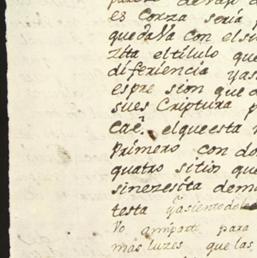 es corza seria p
quedava con el su
zita el titulo que
diferiencia yas
espre sion que d
sues Criptura p
Caē. el questa n
Primero con do
quatro sitios que
sinezesita dema
testa
Yo aniporte para
mas luzes que las